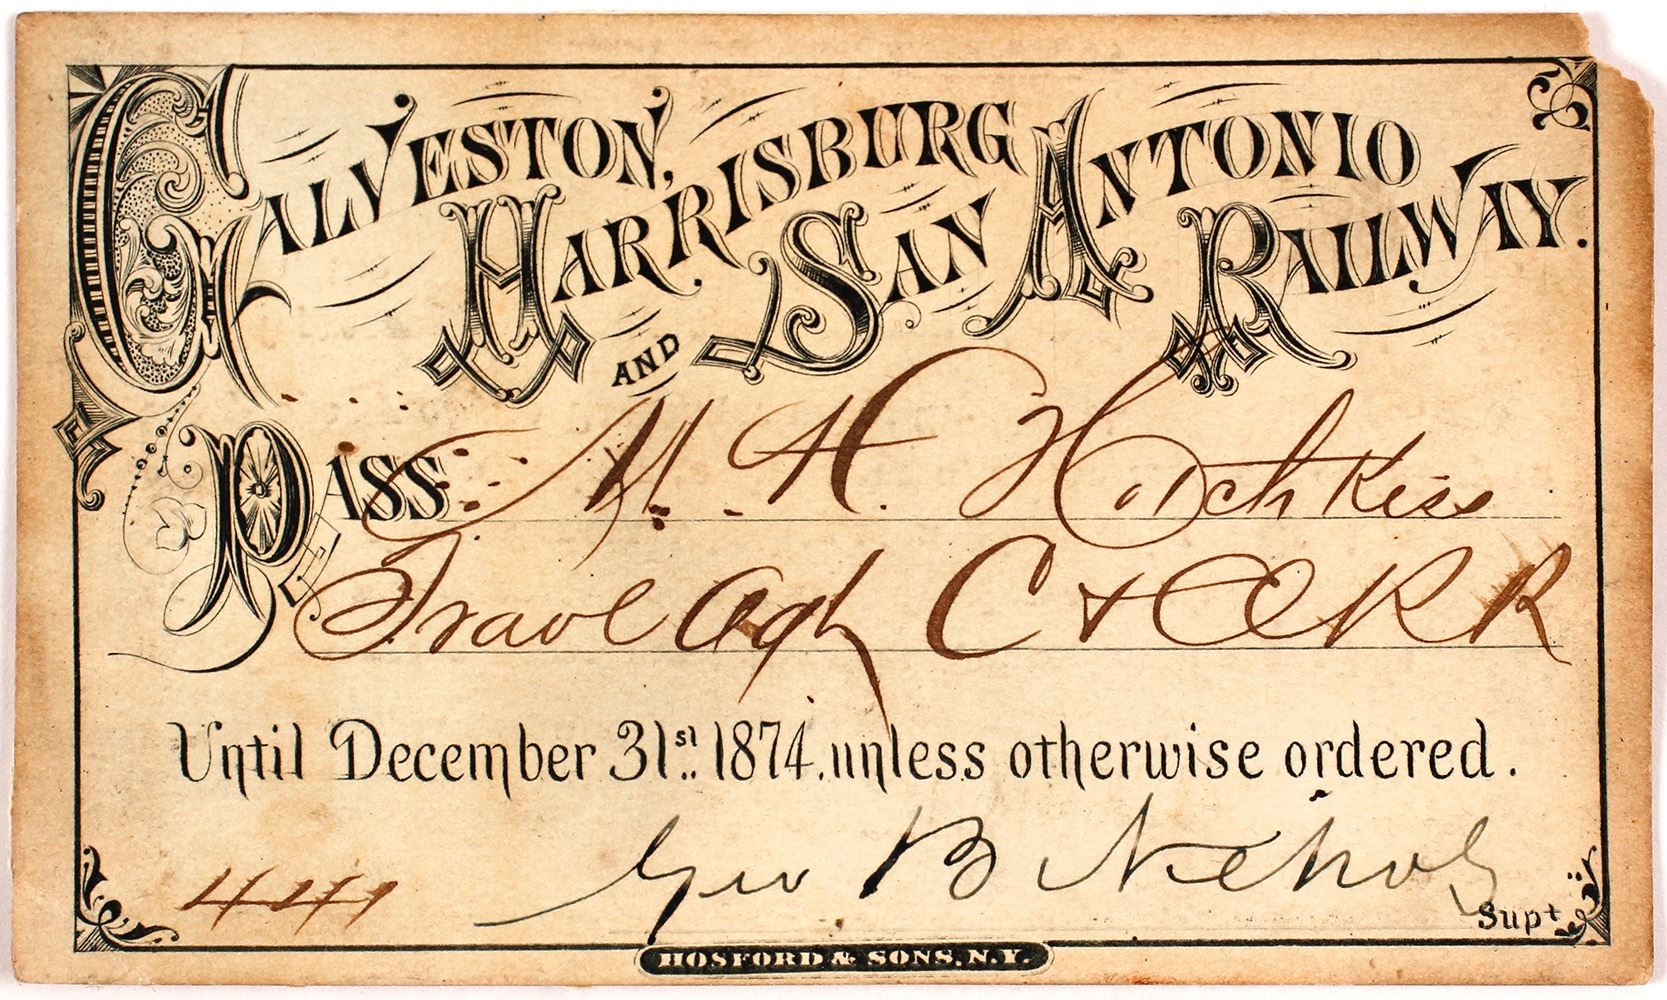 GALVESTON, HARRISBURG AND SAN ANTONIO RAILWAY.
PASS M. H. Hotchkiss
Trav Agt C & A R R
Until December 31st 1874, unless otherwise ordered.
Geo B Nichols
Supt
HOSFORD & SONS, N.Y.